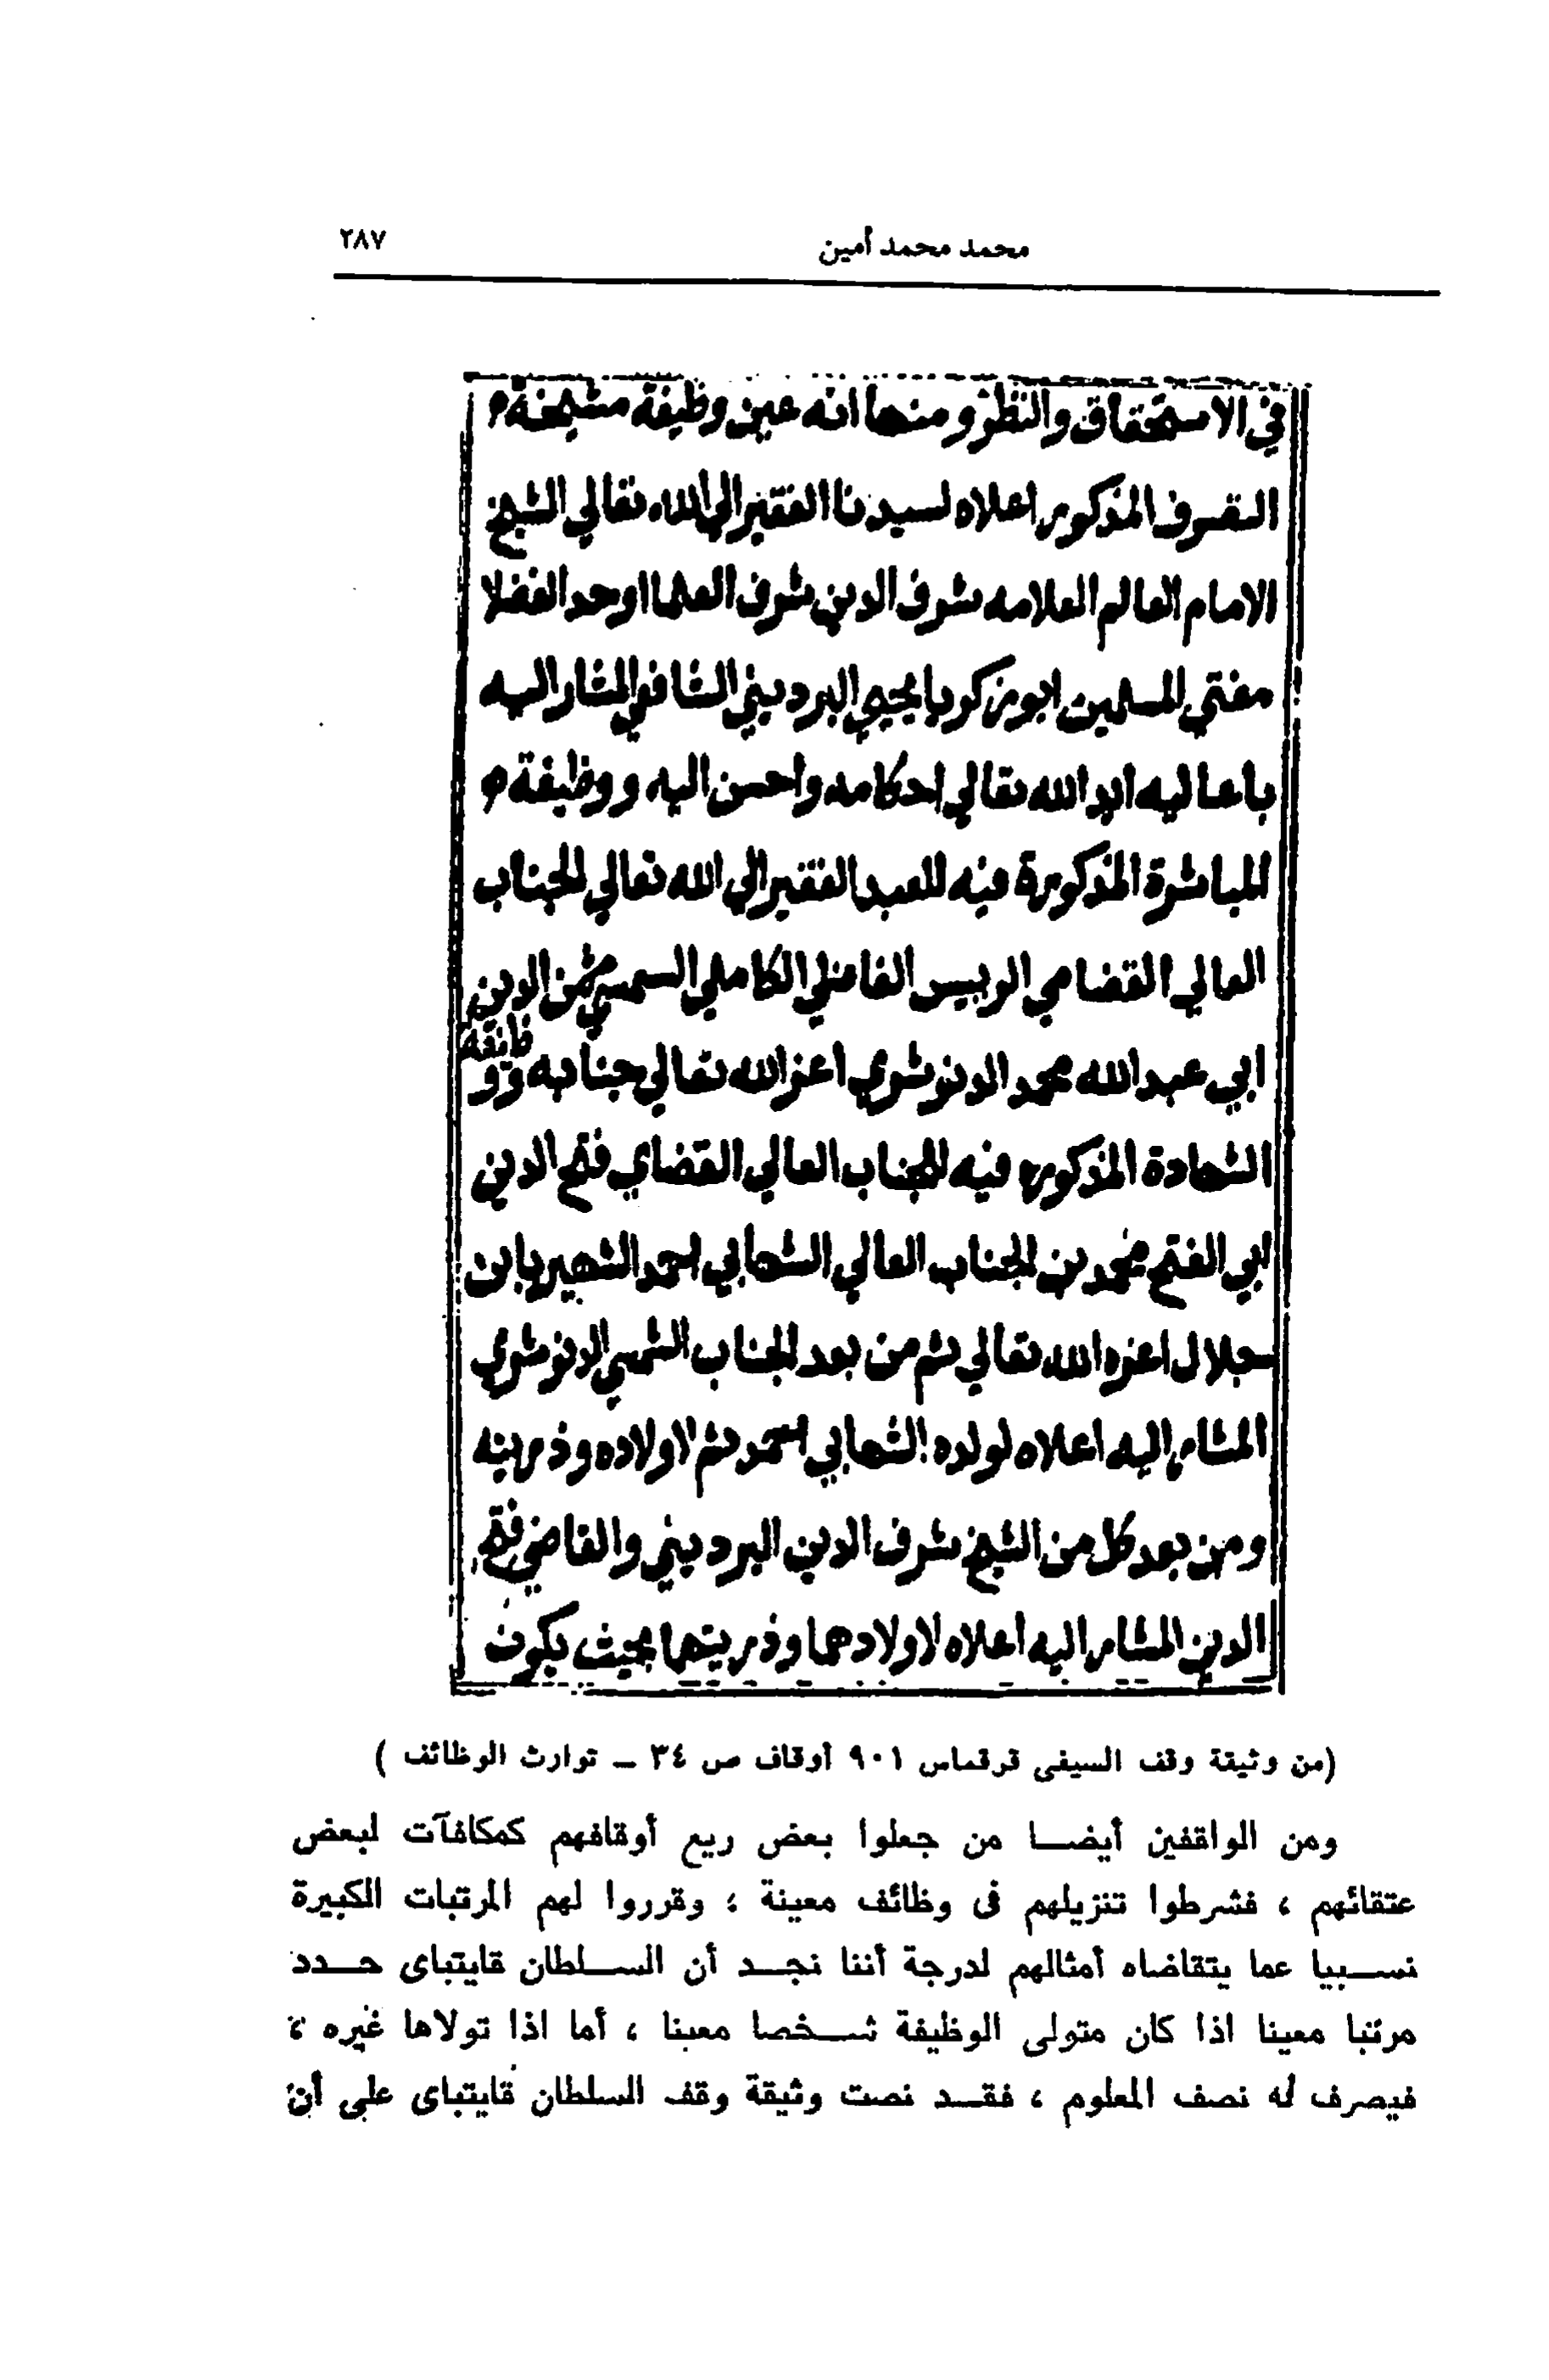 محمد محمد أمين
٢٨٧
في الاستحقاق والنظر ومنها انه عين وظيفة مشيخة
التصوف المذكور اعلاه لسيدنا الفقير الي الله تعالي الشيخ
الامام العالم العلامه شرف الدين شرف العلما اوحد الفضلا
مفتي المسلمين ابو زكريا يحيي البرديني الشافعي المشار اليه
باعاليه ايد الله تعالي احكامه واحسن اليه ووظيفة
المباشرة المذكورة فيه للعبد الفقير الي الله تعالي الجناب
العالي القضايي الرييس الفاضلي الكاملي الشمسي شمس الدين
ابي عبد الله محمد الدنوشري اعز الله تعالي جنابه ووظيفة
الشهادة المذكوره فيه للجناب العالي القضاي فتح الدين
ابي الفتح محمد بن الجناب العالي الشهابي احمد الشهير بابن
جلال اعزه الله تعالي ثم من بعد الجناب الشمسي الدنوشري
المشار اليه اعلاه لولده الشهابي احمد ثم لاولاده وذريته
ومن بعد كل من الشيخ شرف الدين البرديني والقاضي فتح
الدين المشار اليه اعلاه لاولادهما وذريتهما بحيث يكون
(من وثيقة وقف السيفى قرقماس ٩٠١ أوقاف ص ٣٤ ـ توارث الوظائف )
ومن الواقفين أيضا من جعلوا بعض ريع أوقافهم كمكافآت لبعض
عتقائهم ، فشرطوا تنزيلهم فى وظائف معينة ؛ وقرروا لهم المرتبات الكبيرة
نسبيا عما يتقاضاه أمثالهم لدرجة أننا نجد أن السلطان قايتباى حدد
مرتبا معينا اذا كان متولى الوظيفة شخصا معينا ، أما اذا تولاها غيره ،
فيصرف له نصف المعلوم ، فقد نصت وثيقة وقف السلطان قايتباى على أن